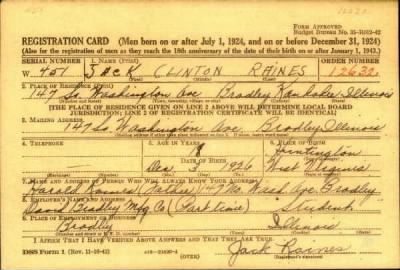 FORM APPROVED
Budget Bureau No. 33-R012-42
REGISTRATION CARD (Men born on or after July 1, 1924, and on or before December 31, 1924)
(Also for the registration of men as they reach the 18th anniversary of the date of their birth on or after January 1, 1943.)
SERIAL NUMBER 1. NAME (Print) ORDER NUMBER
W 451 JACK CLINTON RAINES 12632
2. PLACE OF RESIDENCE (Print)
147 So. Washington Ave Bradley Kankakee Illinois
[THE PLACE OF RESIDENCE GIVEN ON LINE 2 ABOVE WILL DETERMINE LOCAL BOARD
JURISDICTION; LINE 2 OF REGISTRATION CERTIFICATE WILL BE IDENTICAL]
3. MAILING ADDRESS
147 So. Washington Ave Bradley Illinois
4. TELEPHONE 5. AGE IN YEARS 6. PLACE OF BIRTH
18 Huntington
DATE OF BIRTH
Dec 3 1926 West Virginia
7. NAME AND ADDRESS OF PERSON WHO WILL ALWAYS KNOW YOUR ADDRESS
Harold Raines (Father) 147 So. Wash Ave. Bradley
8. EMPLOYER'S NAME AND ADDRESS
David Bradley Mfg Co (Part time) Student
9. PLACE OF EMPLOYMENT OR BUSINESS
Bradley Illinois
I AFFIRM THAT I HAVE VERIFIED ABOVE ANSWERS AND THAT THEY ARE TRUE.
DSS Form 1 (Rev. 11-16-42) Jack Raines